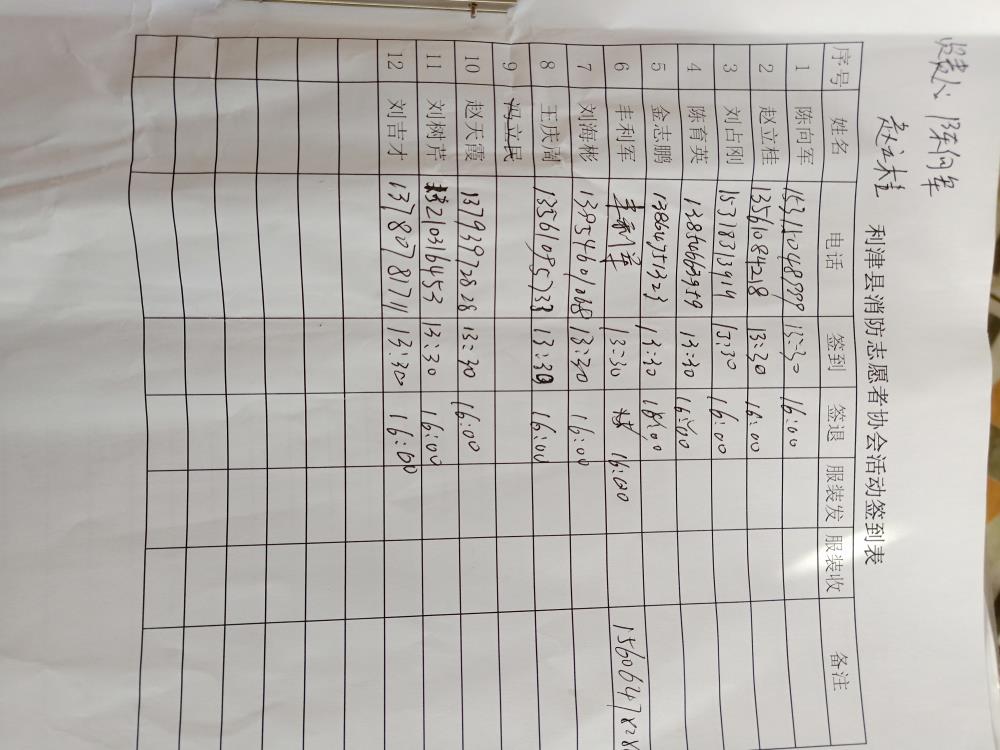 负责人: 陈向军
赵立柱
利津县消防志愿者协会活动签到表
序号 姓名 电话 签到 签退 服装发 服装收 备注
1 陈向军 15311048999 13:30 16:00
2 赵立桂 13561084218 13:30 16:00
3 刘占刚 15378313919 13:30 16:00
4 陈育英 13:30 16:00
5 金志鹏 13864751323 13:30
6 丰利军 丰利军 13:30 16:00
7 刘海彬 13954601068 13:30 16:00
8 王庆周 13561095733 13:30 16:00
9 冯立民
10 赵天霞 13793972828 13:30 16:00
11 刘树芹 13210316453 13:30 16:00
12 刘吉才 13780781711 13:30 16:00